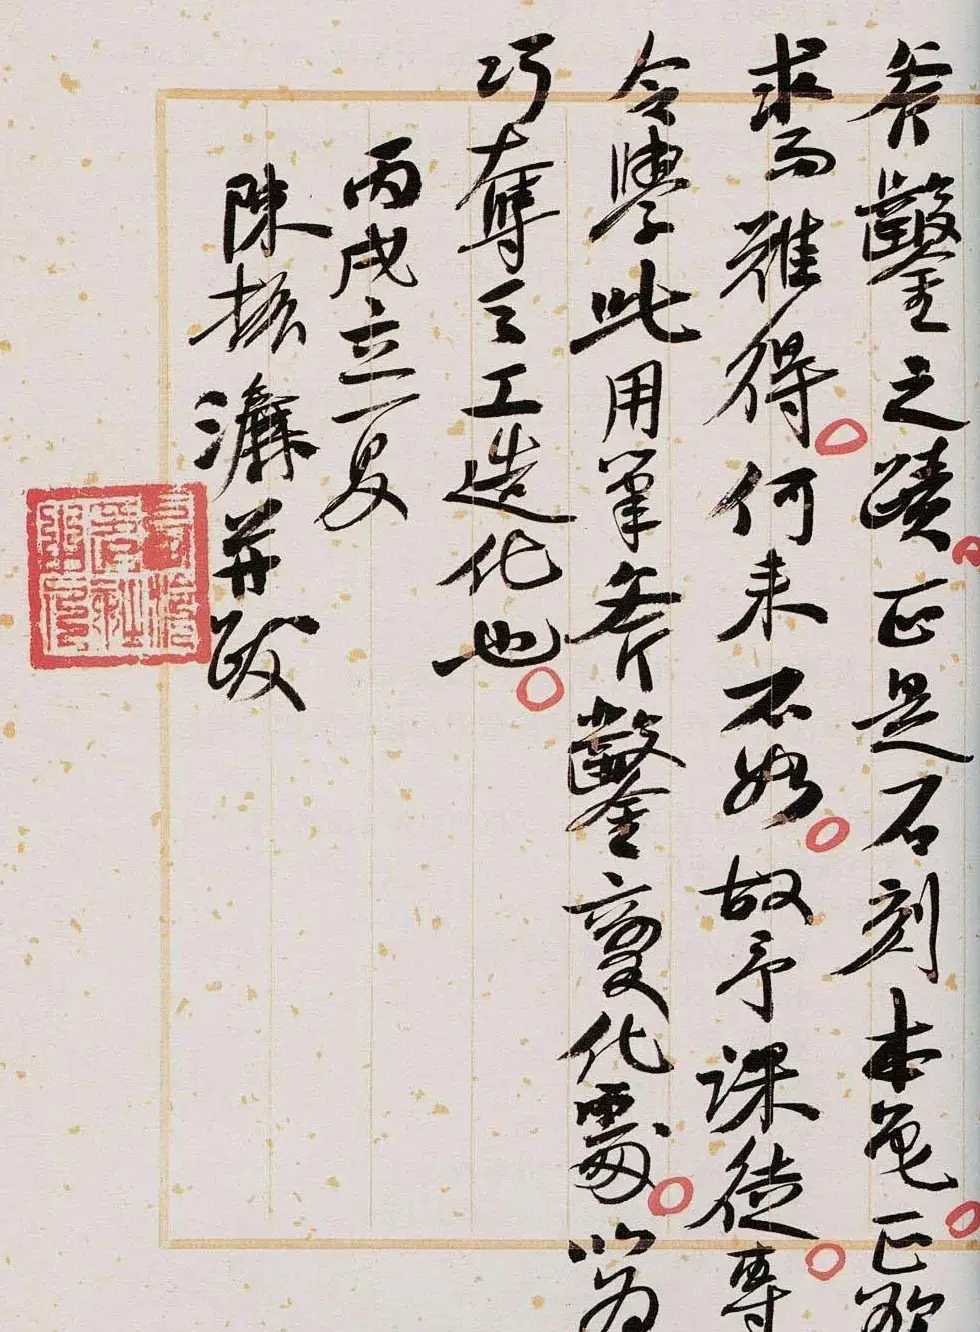 斧鑿之蹟正是石刻本色正欲
求而難得何来不好故予課徒専
令學此用筆斧鑿變化處以為
巧奪天工造化也
丙戌立夏
陳振濂并跋